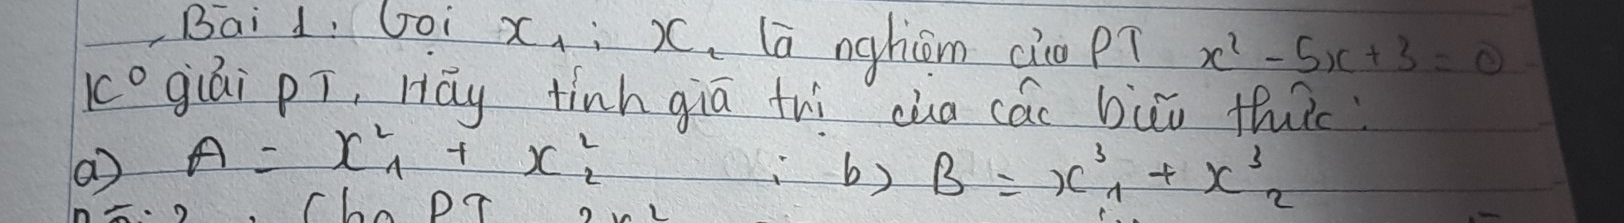 Bài 1: Gọi x₁; x₂ là nghiệm của PT x² - 5x + 3 = 0
K° giải PT. Hãy tính giá trị của các biểu thức:
a) A = x₁² + x₂² ; b) B = x₁³ + x₂³
Bài 2: Cho PT 2x²